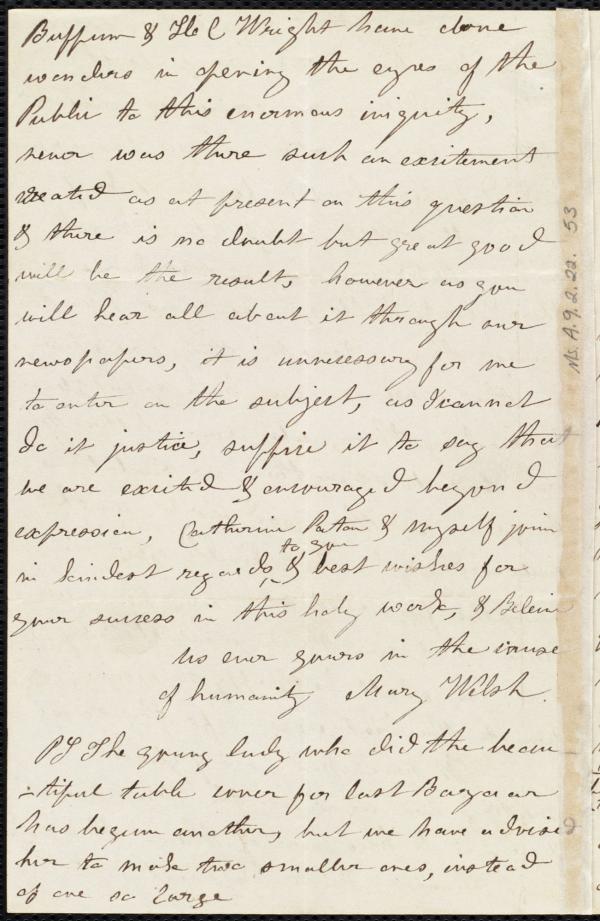 Buffum & H C Wright have done
wonders in opening the eyes of the
Public to this enormous iniquity,
never was there such an excitement
created as at present on this question
& there is no doubt but great good
will be the result, however as you
will hear all about it through our
newspapers, it is unnecessary for me
to enter on the subject, as I cannot
do it justice, suffice it to say that
we are excited & encouraged beyond
expression, Catherine Paton & myself join
in kindest regards, to you & best wishes for
your success in this holy work, & Believe
us ever yours in the cause
of humanity Mary Welsh.
PS The young lady who did the beau
-tiful table cover for last Bazaar
has begun another, but we have advised
her to make two smaller ones, instead
of one so large
Ms. A. 9. 2. 22. 53